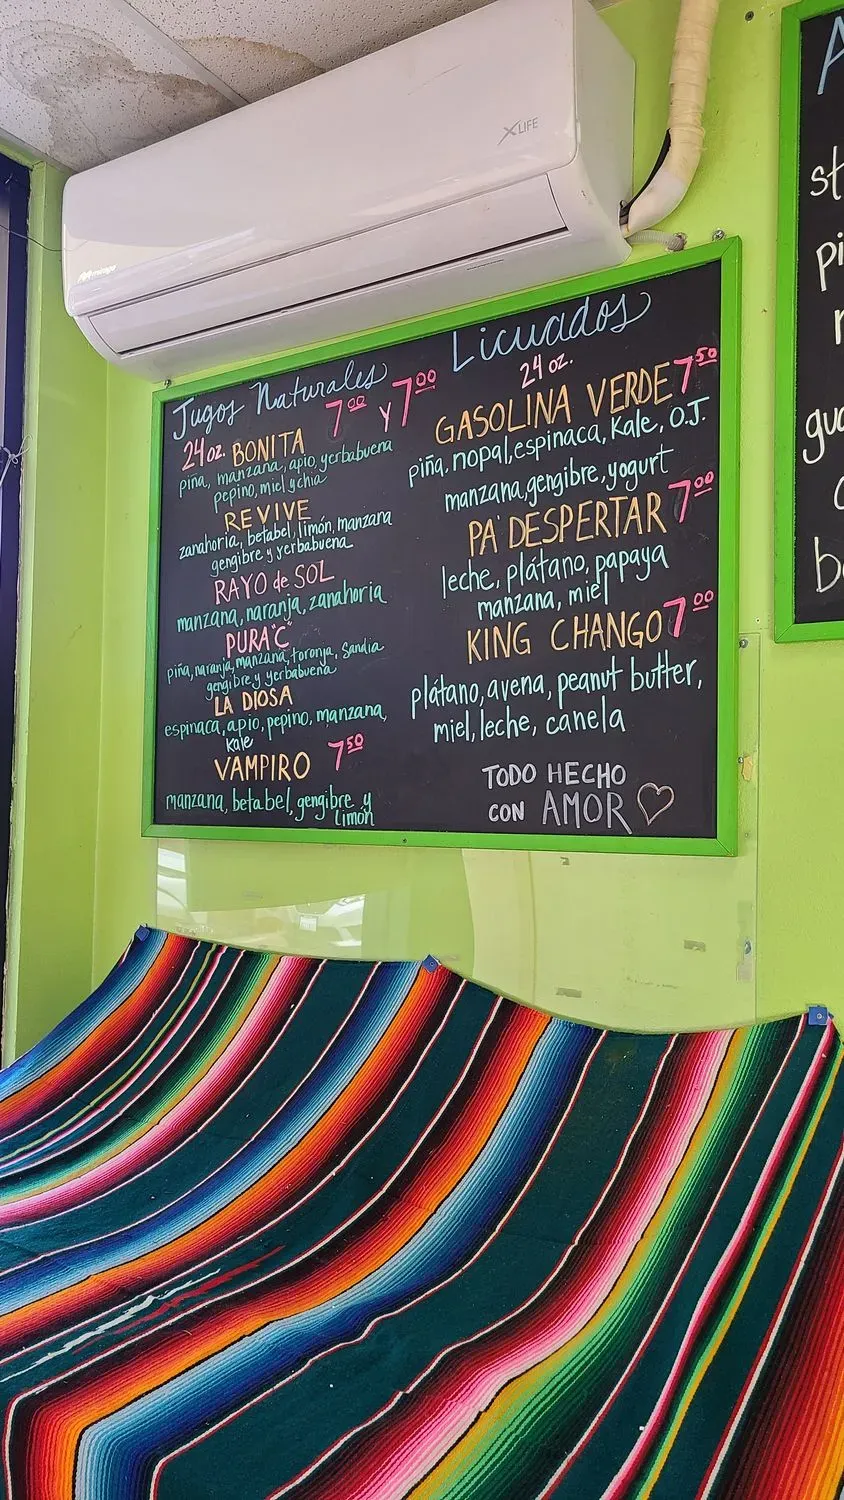 XLIFE
Jugos Naturales
7.00 y 7.00
24 oz. BONITA
piña, manzana, apio, yerbabuena
pepino, miel y chia
REVIVE
zanahoria, betabel, limón, manzana
gengibre y yerbabuena
RAYO de SOL
manzana, naranja, zanahoria
PURA "C"
piña, naranja, manzana, toronja, Sandia
gengibre y yerbabuena
LA DIOSA
espinaca, apio, pepino, manzana,
kale
VAMPIRO 7.50
manzana, betabel, gengibre y
limón
Licuados
24 oz.
GASOLINA VERDE 7.50
piña, nopal, espinaca, Kale, O.J.
manzana, gengibre, yogurt
PA' DESPERTAR 7.00
leche, plátano, papaya
manzana, miel
KING CHANGO 7.00
plátano, avena, peanut butter,
miel, leche, canela
TODO HECHO
CON AMOR